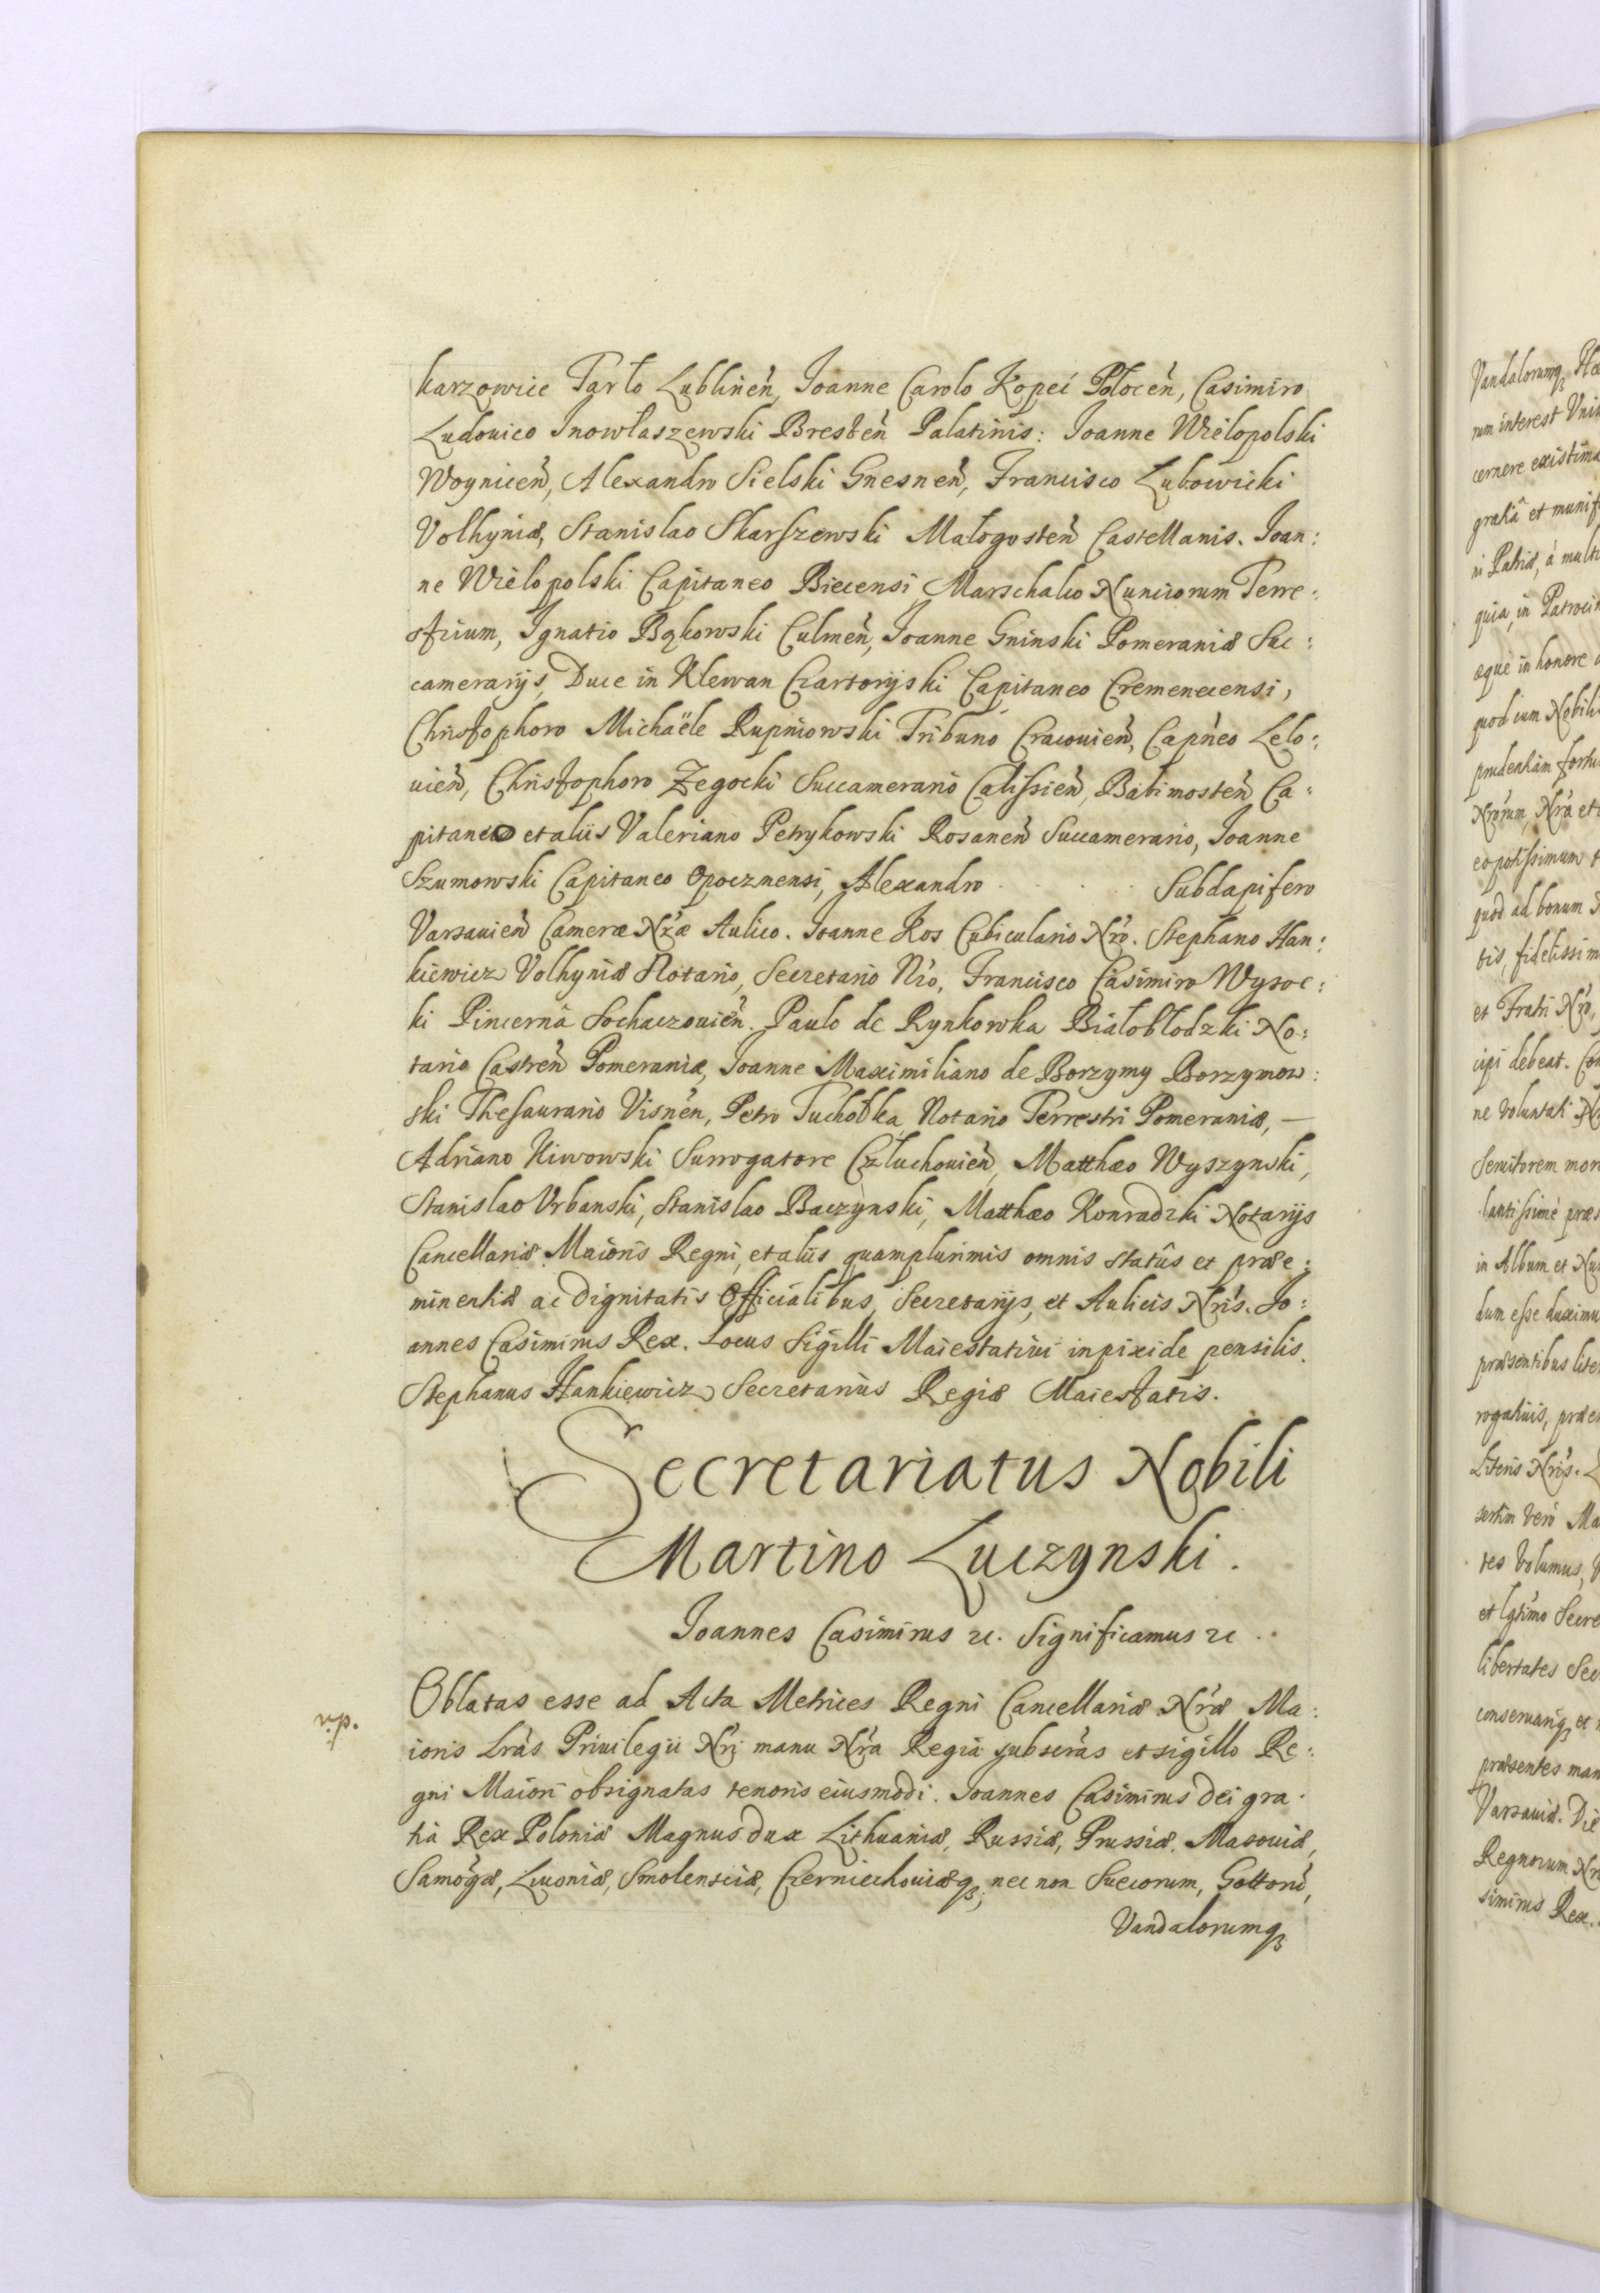 karzowice Tarło Lublineñ, Ioanne Carolo Kopeć Połoceñ, Casimiro
Ludouico Inowłaszewski Bresteñ Palatinis: Ioanne Wielopolski
Woyniceñ, Alexandro Sielski Gnesneñ, Francisco Lubowicki
Volhyniæ, Stanislao Skarszewski Małogosteñ Castellanis. Ioan:
ne Wielopolski Capitaneo Biecensi Marschalco Nunciorum Terre:
strium, Ignatio Bąkowski Culmeñ, Ioanne Gninski Pomeraniæ Suc:
camerarijs, Duce in Klewan Czartoryski Capitaneo Cremenecensi,
Christophoro Michaële Rupniowski Tribuno Cracouieñ, Capñeo Lelo:
uieñ, Christophoro Żegocki Succamerario Calissieñ, Babimosteñ Ca:
pitaneo et aliis Valeriano Petrykowski Rosaneñ Succamerario, Ioanne
Szumowski Capitaneo Opocznensi, Alexandro . . . . Subdapifero
Varsauieñ Cameræ Nr̃æ Aulico. Ioanne Kos Cubiculario Nr̃o. Stephano Han:
kiewicz Volhyniæ Notario, Secretario Nr̃o, Francisco Casimiro Wysoc:
ki Pincernâ Sochaczouieñ. Paulo de Rynkowka Białobłodzki No:
tario Castreñ Pomeraniæ, Ioanne Maximiliano de Borzymy Borzymow:
ski Thesaurario Visneñ, Petro Tuchołka Notario Terrestri Pomeraniæ, —
Adriano Kiwowski Surrogatore Człuchouieñ, Matthæo Wyszynski,
Stanislao Vrbanski, Stanislao Baczynski, Matthæo Konradzki Notarijs
Cancellariæ Maioris Regni, et aliis quamplurimis omnis statûs et præe:
minentiæ ac dignitatis Officialibus, Secretarijs, et Aulicis Nr̃is. Io:
annes Casimirus Rex. Locus Sigilli Maiestatiui in pixide pensilis.
Stephanus Hankiewicz Secretarius Regiæ Maiestatis.
Secretariatus Nobili
Martino Luczynski.
Ioannes Casimirus &c. Significamus &c.
r.p.
Oblatas esse ad Acta Metrices Regni Cancellariæ Nr̃æ Ma:
ioris Lr̃as Priuilegii Nr̃i manu Nr̃a Regiâ subscr̃as et sigillo Re:
gni Maiori obsignatas tenoris eiusmodi. Ioannes Casimirus Dei gra:
tiâ Rex Poloniæ Magnus dux Lithuaniæ, Russiæ, Prussiæ, Masouiæ,
Samog̃æ, Liuoniæ, Smolensciæ, Czerniechouiæq;, nec non Suecorum, Gottorũ,
Vandalorumq;